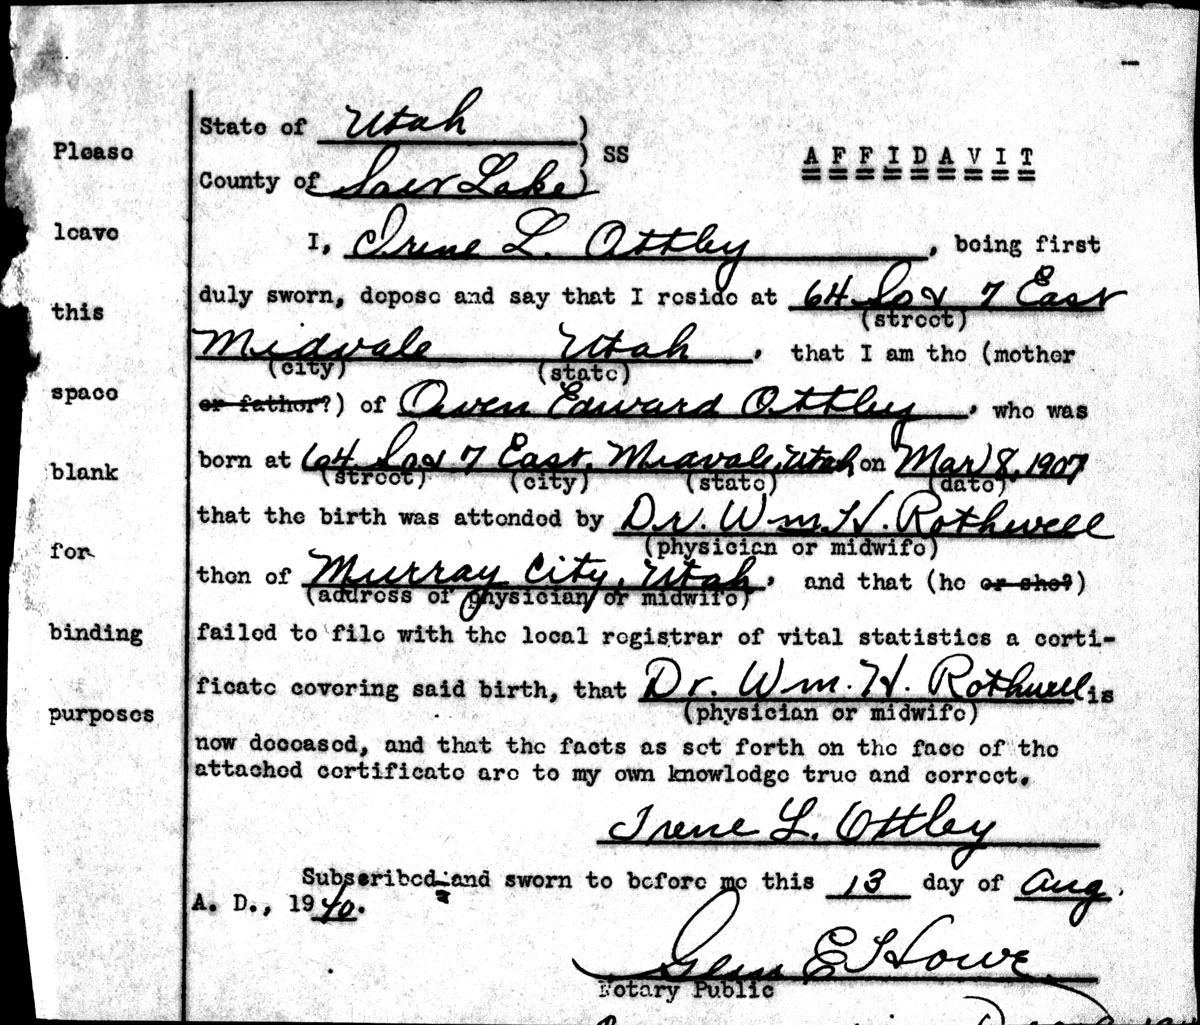 State of Utah )
) SS
County of Salt Lake )
A F F I D A V I T
I, Irene L. Ottley, being first
duly sworn, depose and say that I reside at 64 So & 7 East
(street)
Midvale Utah, that I am the (mother
(city) (state)
or father?) of Owen Edward Ottley, who was
born at 64 So & 7 East, Midvale, Utah on Mar 8, 1907
(street) (city) (state) (date)
that the birth was attended by Dr. Wm. H. Rothwell
(physician or midwife)
then of Murray City, Utah, and that (he or she?)
(address of physician or midwife)
failed to file with the local registrar of vital statistics a certi-
ficate covering said birth, that Dr. Wm. H. Rothwell is
(physician or midwife)
now deceased, and that the facts as set forth on the face of the
attached certificate are to my own knowledge true and correct.
Irene L. Ottley
Subscribed and sworn to before me this 13 day of Aug.
A. D., 1940.
Glen E Howe
Notary Public
Please
leave
this
space
blank
for
binding
purposes